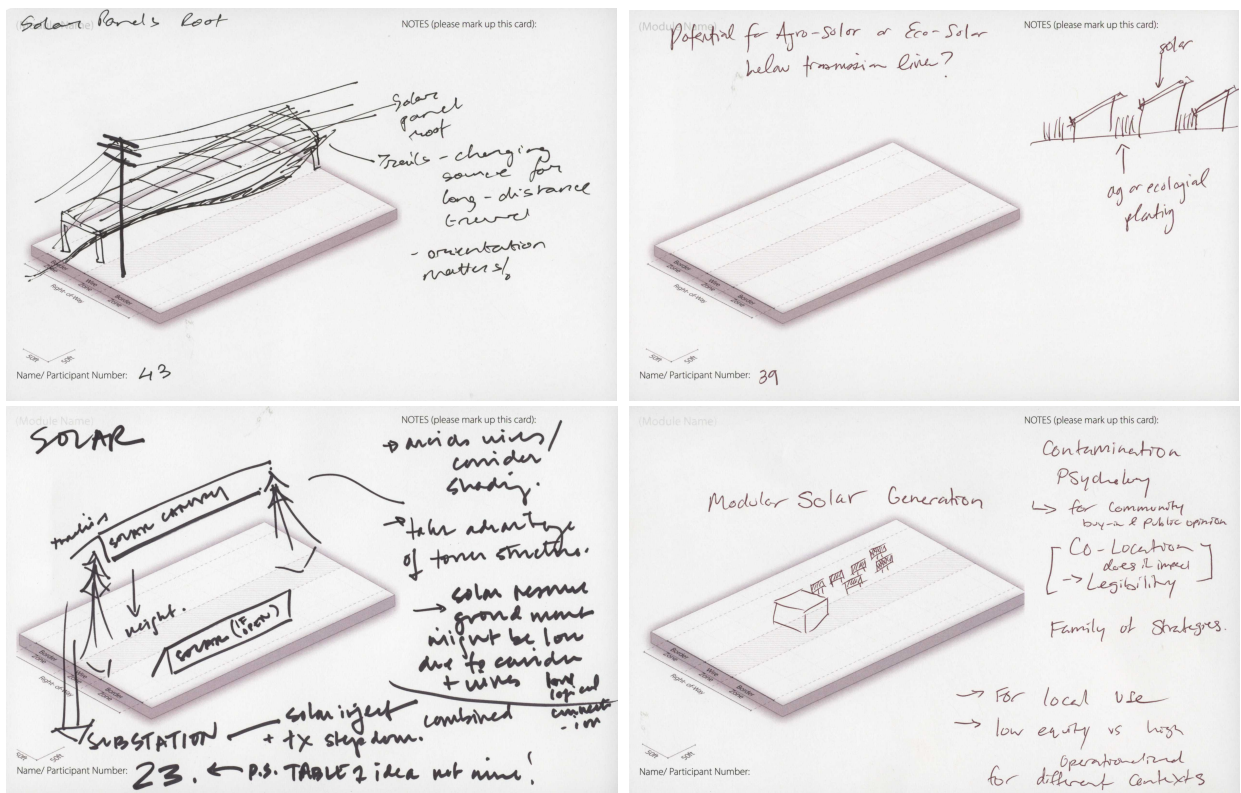 (Module Name)
Solar Panels Roof
NOTES (please mark up this card):
Solar
panel
roof
Trails - charging
source for
long-distance
travel
- orientation
matters!
Border
Zone
Wire
Zone
Border
Zone
Right-of-Way
50ft
50ft
Name/ Participant Number: 43
(Module Name)
Potential for Agro-Solar or Eco-Solar
below transmission lines?
NOTES (please mark up this card):
solar
ag or ecological
planting
Border
Zone
Wire
Zone
Border
Zone
Right-of-Way
50ft
50ft
Name/ Participant Number: 39
(Module Name)
SOLAR
NOTES (please mark up this card):
→ avoids wires/
consider
shading.
→ take advantage
of tower structure.
→ solar resource
ground mount
might be low
due to corridor
+ wires
SOLAR CANOPY
height.
SOLAR (IF
OPEN)
Border
Zone
Wire
Zone
Border
Zone
Right-of-Way
SUBSTATION
solar inject
+ tx stepdown.
combined
50ft
50ft
Name/ Participant Number: 23. ← P.S. TABLE 2 idea not mine!
(Module Name)
Modular Solar Generation
NOTES (please mark up this card):
Contamination
Psychology
↳ for Community
buy-in & Public opinion
Co-Location
does it impact
→ Legibility
Family of Strategies.
→ For local use
→ low equity vs high
Operationalized
for different contexts
Border
Zone
Wire
Zone
Border
Zone
Right-of-Way
50ft
50ft
Name/ Participant Number: